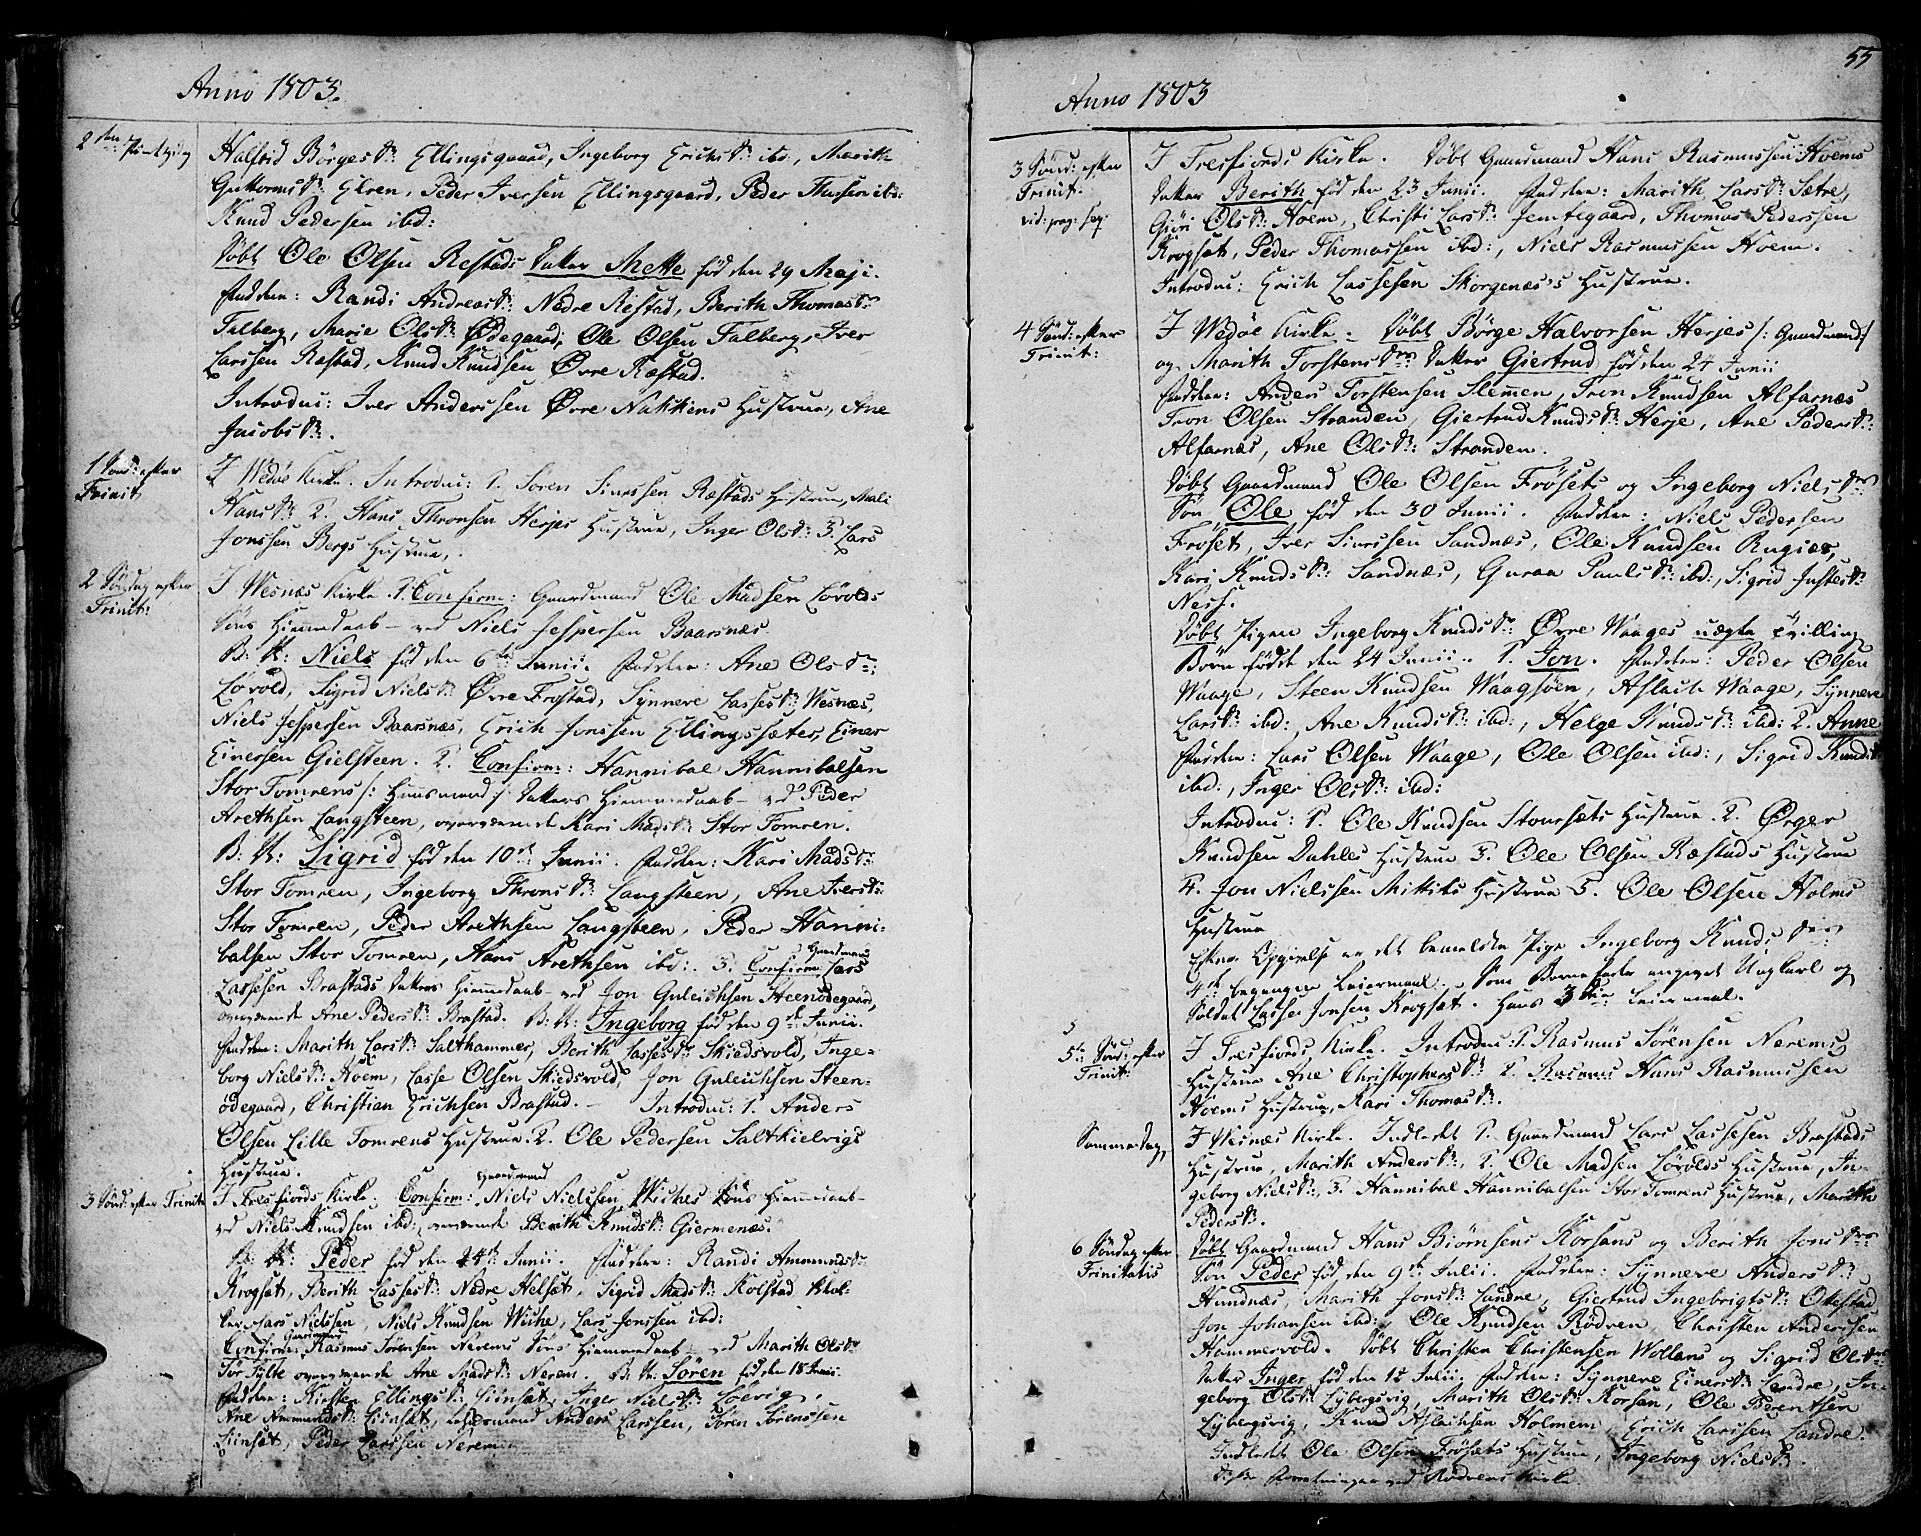 Anno 1803.
2den Pintzdag
Halfrid Börgesdr: Ellingsgaard, Ingeborg Erichsdr: ibd:, Marith
Guttormsdr: Elven, Peder Iversen Ellingsgaard, Peder ibd:
Knud Pedersen ibd:
Döbt Ole Olsen Restads Datter Mette föd den 29 Maji.
Faddere: Randi Andreasdr: Nedre Restad, Berith Thomasdr
Talberg, Marie Olsdr: Ødegaard, Ole Olsen Talberg, Iver
Larssen Ræstad, Knud Knudsen Øvre Ræstad.
Introduc: Iver Anderssen Øvre Nakkens Hustrue, Ane
Jacobsdr:.
1 Sönd: efter
Trinit
I Wedöe Kirke. Introduc: 1. Sören Siverssen Ræstads Hustrue, Mali
Hansdr 2. Hans Thronsen Herjes Hustrue, Inger Olsdr: 3. Lars
Jonssen Bergs Hustrue,
2 Söndag efter
Trinit:
I Wesnæs Kirke 1. Confirm: Gaardmand Ole Madsen Lövolds
Söns Hiemmedaab ved Niels Jespersen Baarsnæs
B: N: Niels föd den 6te Junii. Faddere: Ane Olsdr:
Lövold, Sigrid Nielsdr: Øvre Frostad, Synneve Lassesdr: Wesnæs,
Niels Jespersen Baarsnæs, Erich Jonssen Ellingsæter, Einer
Einersen Gielsteen. 2. Confirm: Hannibal Hannibalsen
Stor Tomrens /: Huusmand :/ Datters Hiemmedaab ved Peder
Arethsen Langsteen, overværende Kari Madsdr: Stor Tomren.
B: N: Sigrid föd den 10de Junii. Faddere: Kari Madsdr:
Stor Tomren, Ingeborg Thronsdr: Langsteen, Ane Iversdr:
Stor Tomren, Peder Arethsen Langsteen, Peder Hanni-
balsen Stor Tomren, Hans Arethsen ibd:. 3. Confirm: Gaardmand Lars
Lassesen Brastads Datters Hiemmedaab ved Jon Guleichsen Steenödegaard,
overværende Ane Pedersdr: Brastad. B: N: Ingeborg föd den 9de Junii.
Faddere: Marith Larsdr: Salthammer, Berith Lassesdr Skiedsvold, Inge-
borg Nielsdr: Hoem, Lasse Olsen Skiedsvold, Jon Guleichsen Steen-
ödegaard, Christian Erichsen Brastad. Introduc: 1. Anders
Olsen Lille Tomrens Hustrue 2. Ole Pedersen Saltkielvigs
Hustrue.
3 Sönd: efter Trinit:
I Tresfiords Kirke. Confirm: Gaardmand Niels Nielssen Wiches Söns Hiemmedaab
ved Niels Knudsen ibd:, overværende Berith Knudsdr: Giermenæs.
B: N: Peder föd den 14de Junii. Faddere: Randi Amonnsdr
Krogset, Berith Lassesdr: Nedre Helset, Sigrid Madsdr: Kolstad,
Lars Nielssen, Niels Knudsen Wiche, Lars Jonssen ibd:
Confirm: Gaardmand Rasmus Sörensen Nerems Söns Hiemmedaab ved Marith Olsdr
Tör Sylte overværende Ane Madsdr: Nerem. B: N: Sören föd den 18 Junii.
Faddere: Kirsten Ellingsdr: Siinset, Inger Nielsdr:
Ane Ammundsdr: Siinset, Anders Larssen, Sören Sörenssen
Siinset, Peder Larssen Nerem
55
Anno 1803
3 Sönd: efter
Trinit:
vid: pag: seq:
I Tresfiords Kirke. Döbt Gaardmand Hans Rasmussen Hoems
Datter Berith föd den 23 Junii. Faddere: Marith Larsdr: Sætre,
Giöri Olsdr: Hoem, Christi Larsdr: Jemtegaard, Thomas Pederssen
Krogset, Peder Thomassen ibd:, Niels Rasmussen Hoem.
Introduc: Erich Lassesen Skorgenæs's Hustrue.
4 Sönd: efter
Trinit:
I Wedöe Kirke. Döbt Börge Halvorsen Herjes /: Gaardmand :/
og Marith Torstensdrs Datter Giertrud föd den 24 Junii
Faddere: Anders Torstensen Slemmen, Tron Knudsen Alfarnæs
Tron Olsen Stranden, Giertrud Knudsdr: Herje, Ane Pedersdr:
Alfarnæs, Ane Olsdr: Stranden.
Döbt Gaardmand Ole Olsen Frösets og Ingeborg Nielsdrs
Sön Ole föd den 30 Junii. Faddere: Niels Pedersen
Fröset, Iver Siverssen Sandnæs, Ole Knudsen Rugiæs,
Kari Knudsdr: Sandnæs, Guraa Paulsdr: ibd:, Sigrid Justesdr:
Ness.
Döbt Pigen Ingeborg Knudsdr Øvre Waages uægte tvilling
Börn födde den 24 Junii. 1. Jon. Faddere: Peder Olsen
Waage, Steen Knudsen Waagsöen, Aslach Waage, Synneve
Larsdr: ibd:, Ane Knudsdr: ibd:, Helge Knudsdr: ibd: 2. Anne
Faddere: Lars Olsen Waage, Ole Olsen ibd:, Sigrid Knudsdr
ibd:, Inger Olsdr: ibd:
Introduc: 1. Ole Knudsen Stoursæts Hustrue. 2. Ørger
Knudsen Dahles Hustrue 3. Ole Olsen Ræstads Hustrue
4. Jon Nielssen Mittets Hustrue 5. Ole Olsen Holms
Hustrue
Efter Opgivelse er det bemeldte Pige Ingeborg Knudsdrs
4de begangne Leiermaal. Som Barnefader angivet Ungkarl og
Soldat Lasse Jonsen Krogset. Hans 3die Leiermaal.
5te Sönd: efter
Trinit:
I Tresfiords Kirke. Introduc: 1. Rasmus Sörensen Nerems
Hustrue Ane Christophersdr: 2. Hans Rasmussen
Hoems Hustrue, Kari Thomasdr:.
Samme Dag
I Wesnæs Kirke. Indledet 1. Gaardmand Lars Lassesen Brastads
Hustrue, Marith Andersdr:, 2. Ole Madsen Lövolds Hustrue, In-
geborg Nielsdr:, 3. Hannibal Hannibalsen Stor Tomrens Hustrue, Marith
Pedersdr:.
6 Söndag efter
Trinitatis
Döbt Gaardmand Hans Biörnsens Korsans og Berith Jonsdrs
Sön Peder föd den 9de Julii. Faddere: Synneve Andersdr:
Hundnæs, Marith Jonsdr: Landre, Giertrud Ingebrigtsdr: Okestad
Jon Johansen ibd:, Ole Knudsen Rödven, Christen Anderssen
Hammervold. Döbt Christen Christensen Wollans og Sigrid Olsdrs
Datter Inger föd den 15 Julii. Faddere: Synneve Einersdr: Landre, In-
geborg Olsdr: Lybergsvig, Marith Olsdr: Korsan, Ole Berentsen
Lybergsvig, Knud Aslachsen Holmem, Erich Larssen Landre.
Indledet Ole Olsen Frösets Hustrue, Ingeborg Nielsdr:.
Disse Forretninger ved Rödvens Kirke.